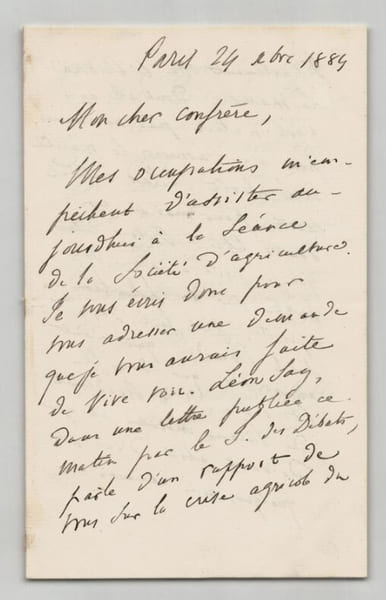 Paris 24 xbre 1884
Mon cher confrère,
Mes occupations m'em-
pêchent d'assister au-
jourdhui à la Séance
de la Société d'agriculture.
Je vous écris donc pour
vous adresser une demande
que je vous aurais faite
de vive voix. Léon Say,
dans une lettre publiée ce
matin par le J. des Débats,
parle d'un rapport de
vous sur la crise agricole du